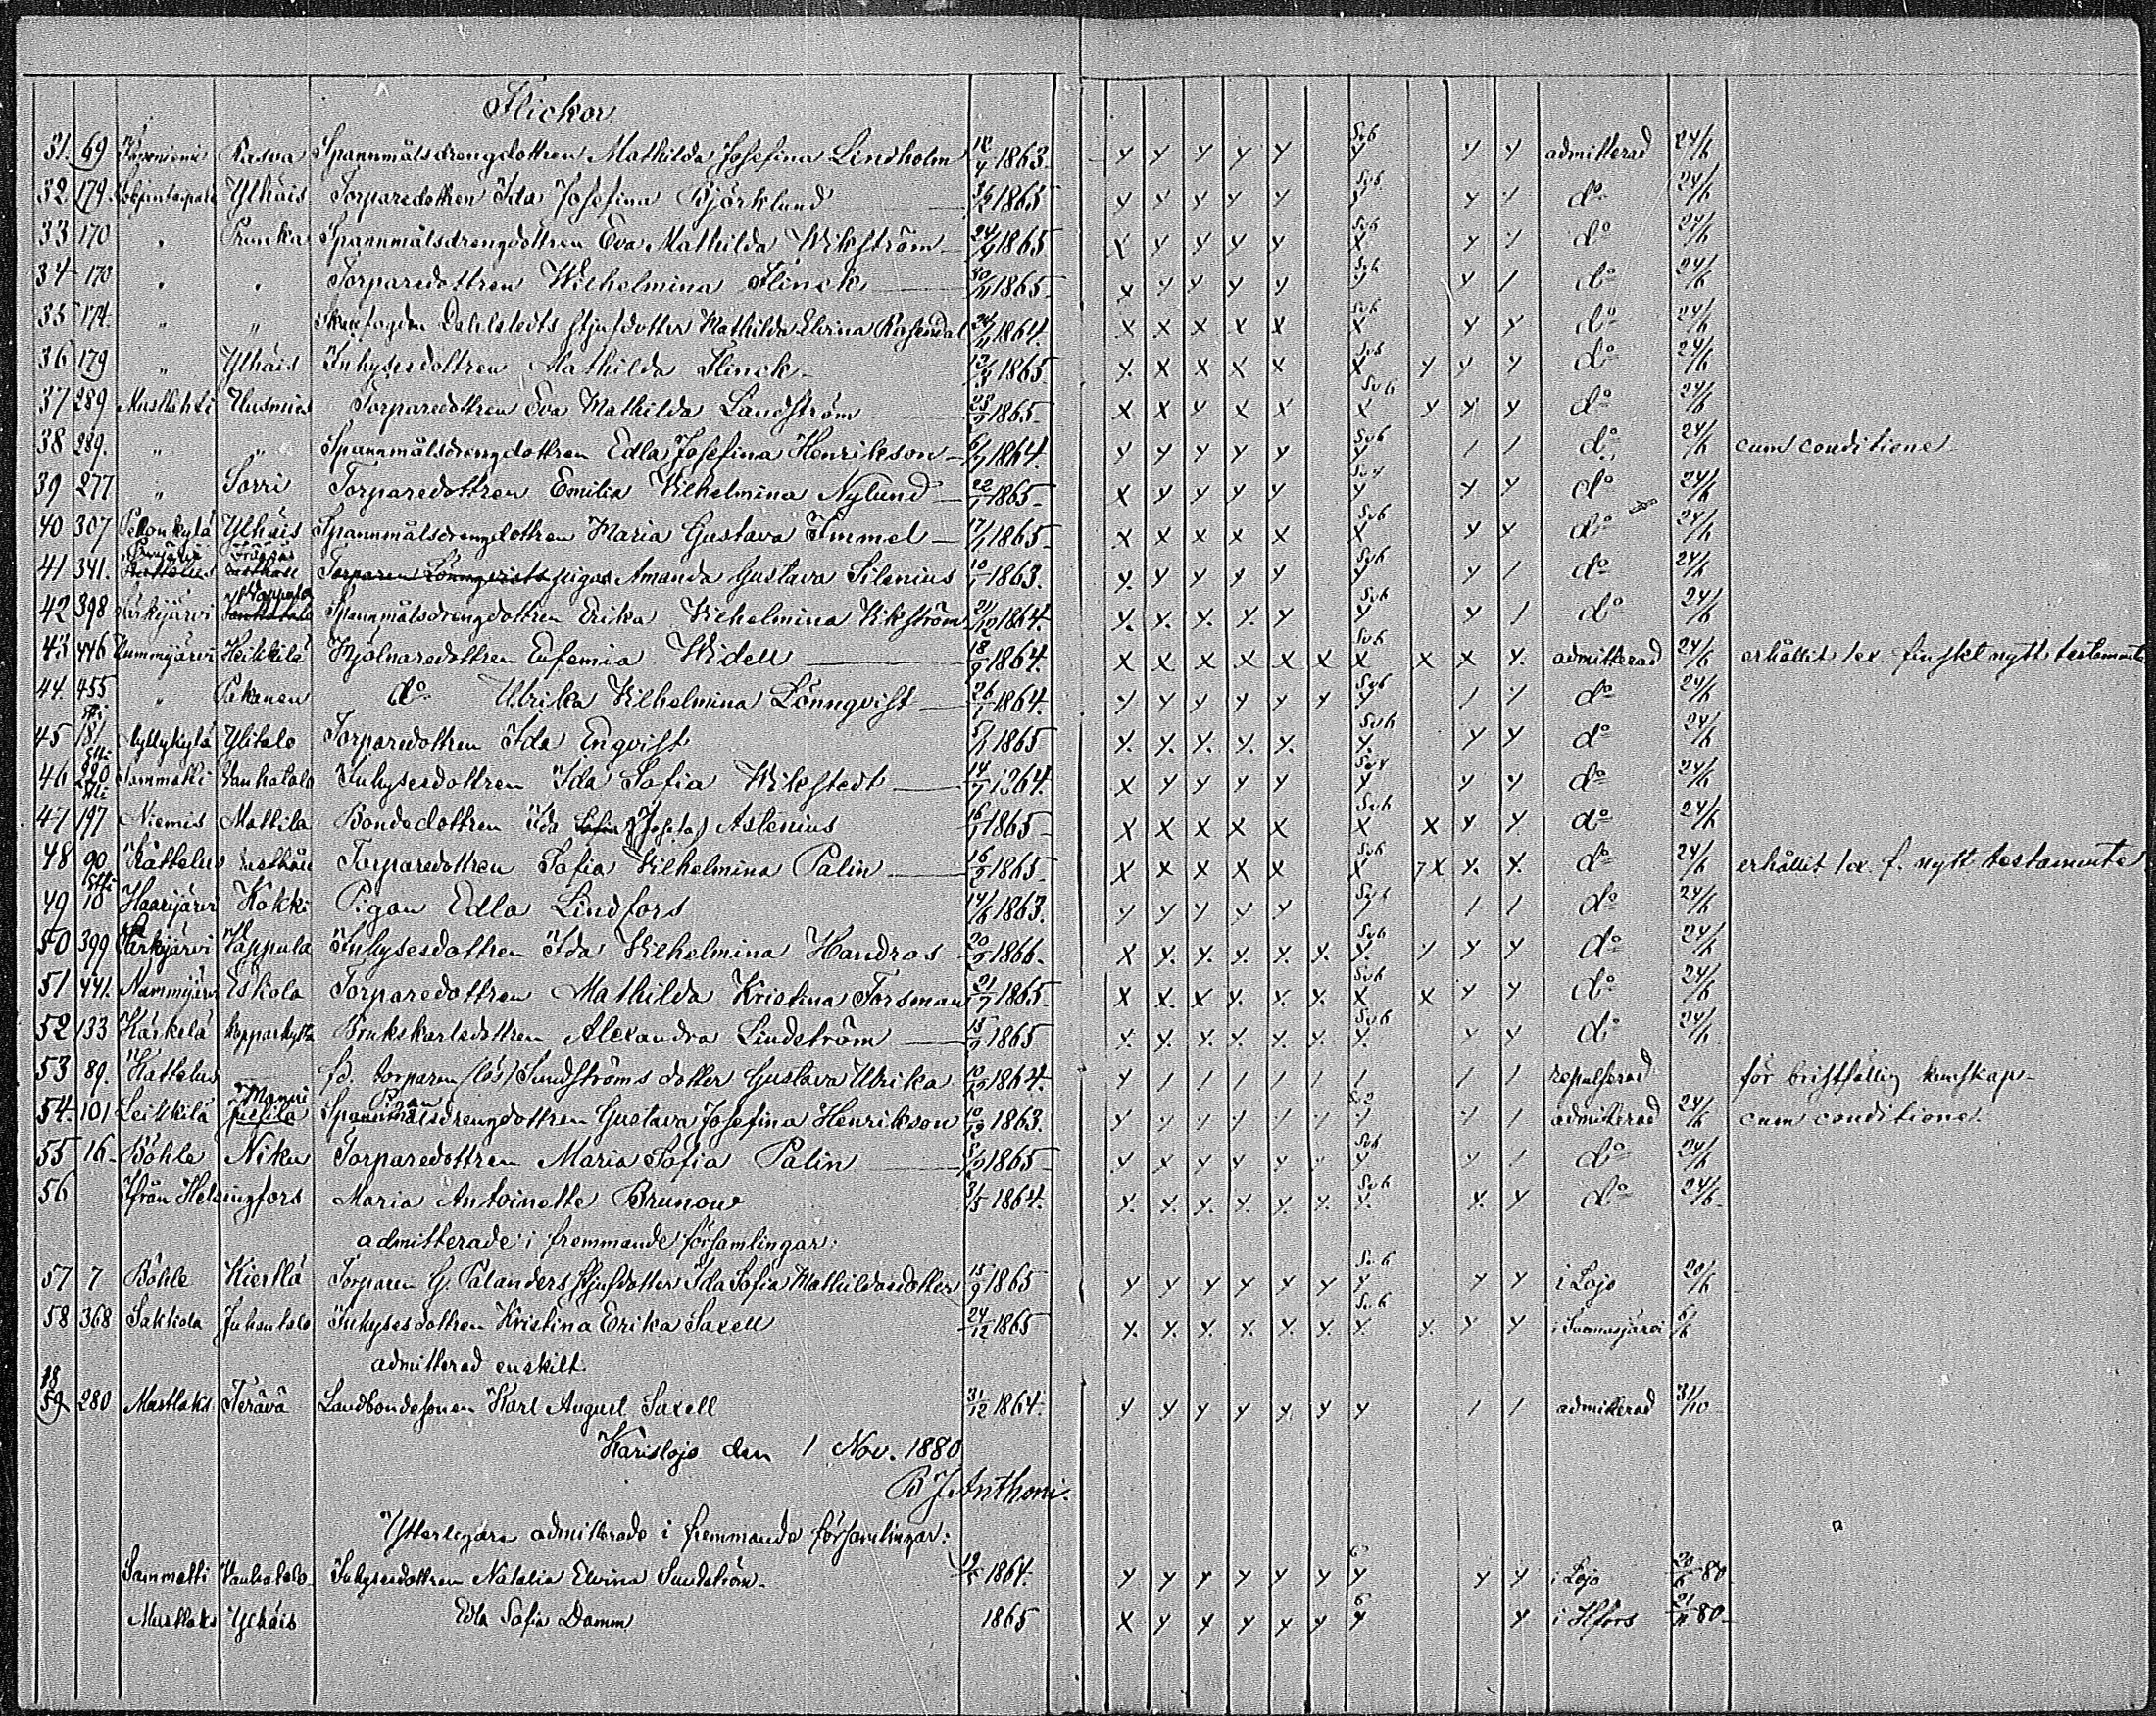 Flickor
31. 69 Karoniemi Rasva Spannmålsdrengdottren Mathilda Josefina Lindholm 1863. y y y y y y y y admitterad 24/6
32 179. Ylhäis Torparedottren Ida Josefina Björklund 1865 y y y y y y y y do 24/6
33 170 " Prunka Spannmålsdrengdottren Eva Mathilda Wikström 24/9 1865 x y y y y x y y do 24/6
34 170 " " Torparedottren Wilhelmina Flinck 30/11 1865 x y y y y y y / do 24/6
35 174. " " Dahlstedts stjufdotter Mathilda Elvina Rosendal 24/11 1864. x x x x x x y y do 24/6
36 179 " Ylhäis Inhysesdottren Mathilda Flinck 12/3 1865 y x x x x x y y y do 24/6
37 289 Mustlahti Husmies Torparedottren Eva Mathilda Landström 23/9 1865 x x y x x x y y y do 24/6
38 289. " " Spannmålsdrengdottren Edla Josefina Henrikson 6/7 1864. y y y y y y / / do 24/6 cum conditione
39 277 " Torri Torparedottren Emilia Wilhelmina Nylund 22/7 1865 x y y y y y y y do 24/6
40 307 Pellonkylä Ylhäis Spannmålsdrengdottren Maria Gustava Immel 17/1 1865 x x x x x x y y do 24/6
41 341. Torparen Lönnqvists pigan Amanda Gustava Silenius 10/1 1863. y y y y y y y / do 24/6
42 398 Särkijärvi Wappula Spannmålsdrengdottren Erika Wilhelmina Wikström 21/12 1864. y. y. y. y. y y y / do 24/6
43 446 Nummijärvi Heikkilä Mjölnaredottren Eufemia Widell 18/9 1864. x x x x x x x x x y. admitterad 24/6 erhållit 1 ex. finskt nytt testamente
44. 455 " Pakanen do Ulrika Wilhelmina Lönnqvist 26/1 1864. y y y y y y y / y do 24/6
45 181 Myllykylä Ylitalo Torparedottren Ida Enqvist 5/1 1865 y. y. y. y. y. y. y y do 24/6
46 220 Sammatti Vanhatalo Inhysesdottren Ida Sofia Wikstedt 14/7 1864. x y y y y y y y do 24/6
47 197 Niemis Mattila Bondedottren Ida Sofia (Josefa) Astenius 16/1 1865 x x x x x x x y y do 24/6
48 90 Kattelus Torparedottren Sofia Wilhelmina Palin 16/2 1865 x x x x x x x x. x. do 24/6 erhållit 1 ex. f. nytt testamente
49 10 Haarijärvi Kokki Pigan Edla Lindfors 14/6 1863. y y y y y y / / do 24/6
50 399 Särkijärvi Wappula Inhysesdottren Ida Wilhelmina Handros 20/2 1866. x y. y. y. y. y. y. y y y do 24/6
51 441. Nummijärvi Eskola Torparedottren Mathilda Kristina Forsman 21/7 1865 x x. x y. y. y. x x y y do 24/6
52 133 Kärkelä kopparhytta Brukskarlsdottren Alexandra Lindström 15/9 1865 y. y. y. y. y. y. y. y y do 24/6
53 89. Kattelus fd. torparen (lös) Sundströms dotter Gustava Ulrika 10/12 1864. y / / / / / / / / repulserad för bristfällig kunskap
54. 101 Leikkilä Manni Pigan Spannmålsdrengdottren Gustava Josefina Henrikson 10/12 1863. y y y y y / / / / admitterad 24/6 cum conditione.
55 16 Böhle Niku Torparedottren Maria Sofia Palin 1865 y x y y y y y y / do 24/6
56 Ifrån Helsingfors Maria Antoinette Brunow 1864. y. y. y. y. y. y. y. y. y do 24/6
admitterade i fremmande församlingar:
57 7 Böhle Kierllä Torparen G. Palanders stjufdotter Ida Sofia Mathildasdotter 15/9 1865 y y y y y y y y y i Lojo 20/6
58 368 Saklida Juhantalo Inhysesdottren Kristina Erika Saxell 24/12 1865 y. y. y. y. y. y. y. y. y y i Suomusjärvi 6/6
admitterad enskilt.
18
59 280 Mustlaks Terävä Landbondesonen Karl August Saxell 31/12 1864. y y y y y y y / / admitterad 31/10
Karislojo den 1 Nov. 1880
B J Anthoni.
Ytterligare admitterade i fremmande församlingar:
Sammatti Vanhatalo Inhysesdottren Natalia Elvira Sundström. 19/5 1864. y y y y y y y y y i Lojo 20/6 80
Mustlaks Ylhäis Edla Sofia Damm 1865 x y y y y y y y i Hfors 21/11 80